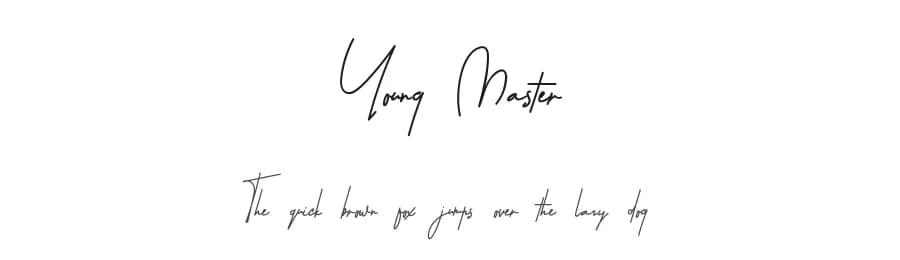 Young Master
The quick brown fox jumps over the lazy dog